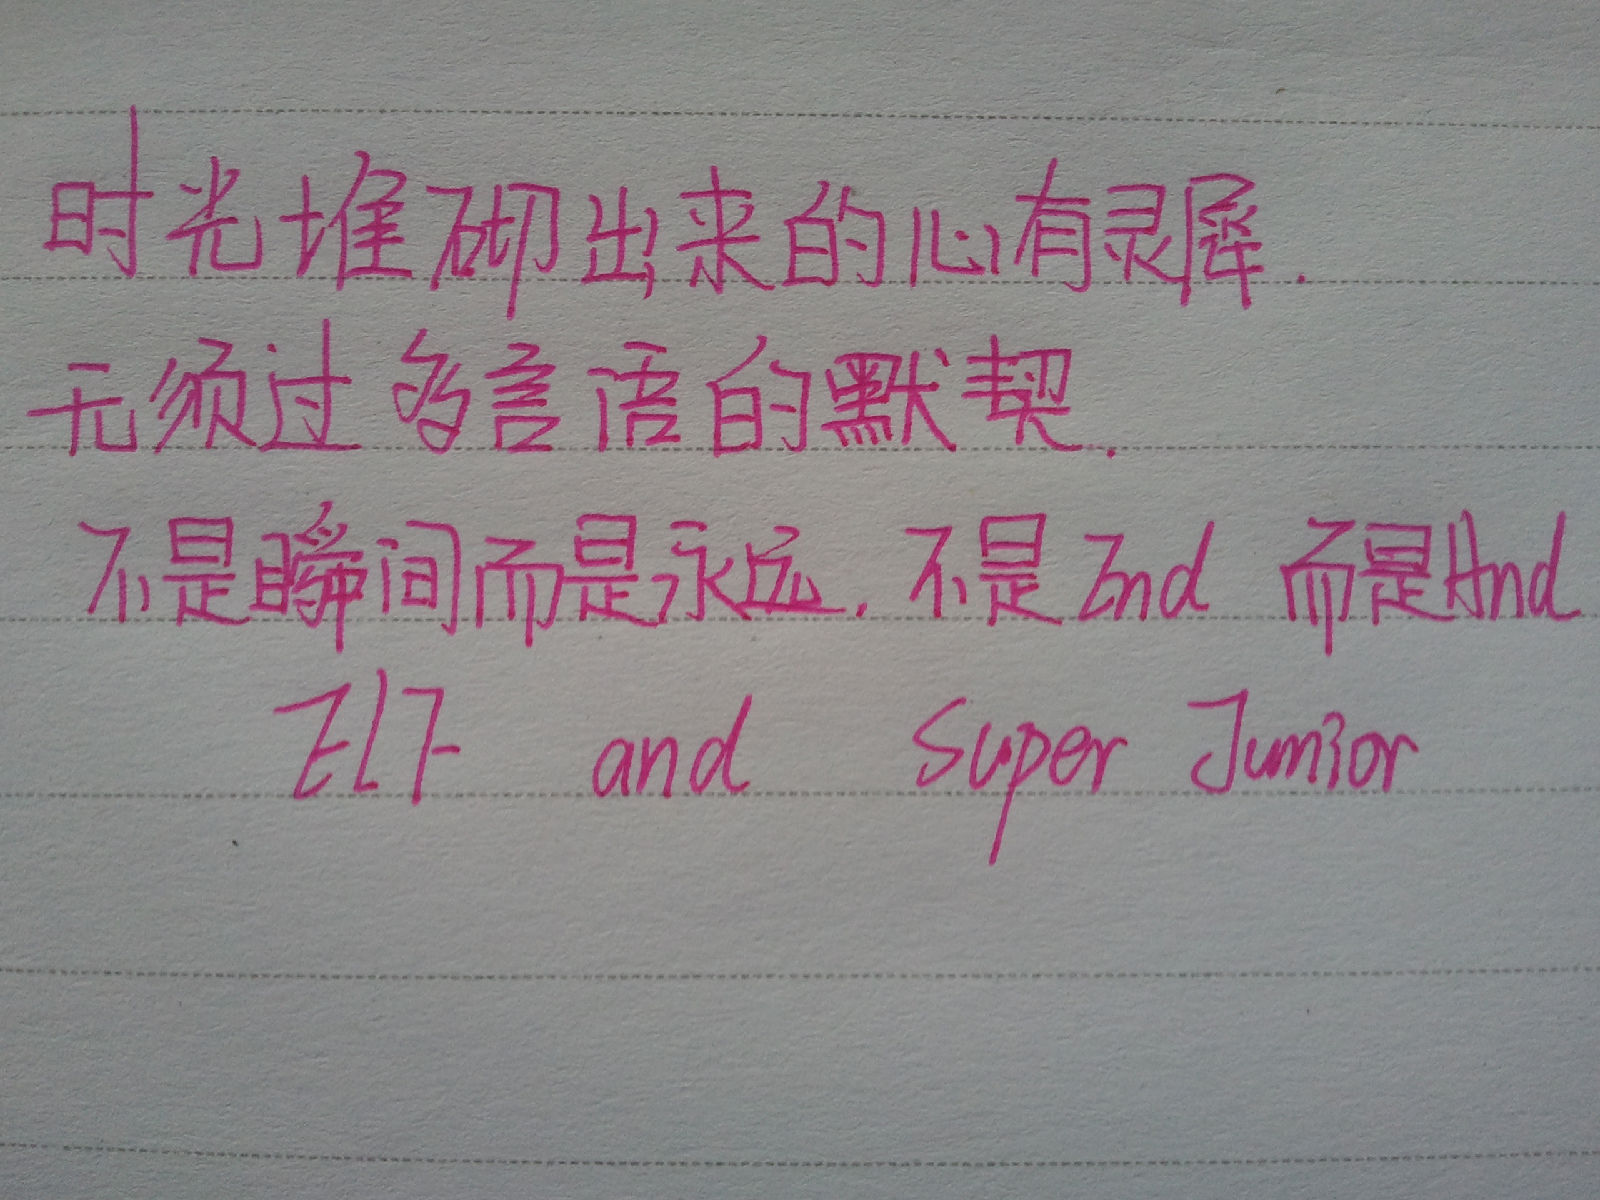 时光堆砌出来的心有灵犀.
无须过多言语的默契.
不是瞬间而是永远.不是End 而是And
ELF and Super Junior